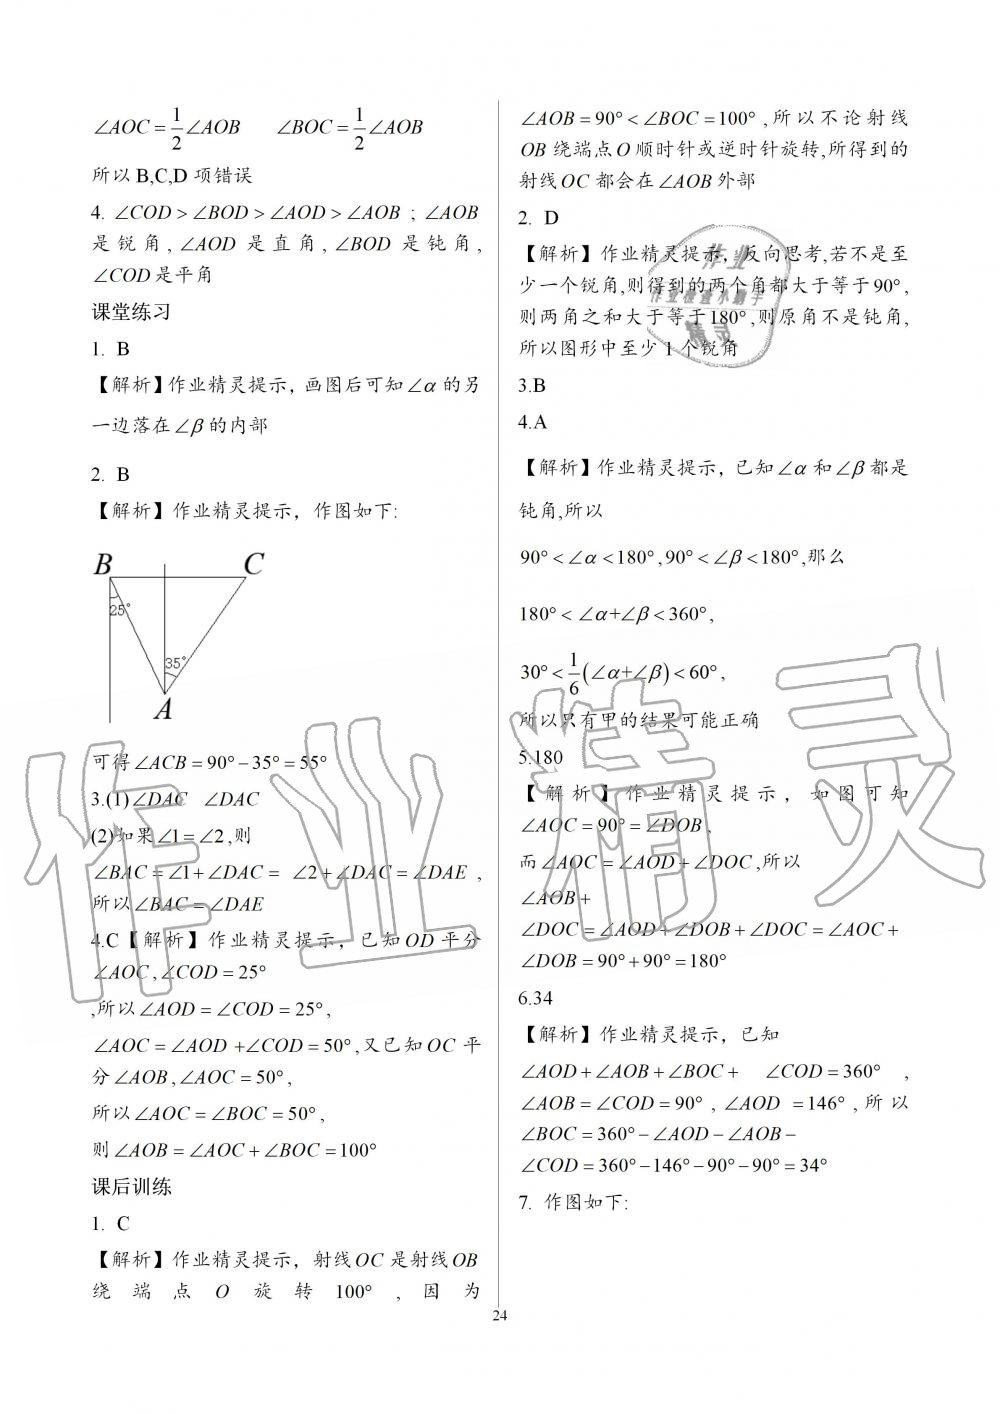 ∠AOC=1/2∠AOB ∠BOC=1/2∠AOB
所以 B,C,D 项错误
4. ∠COD＞∠BOD＞∠AOD＞∠AOB；∠AOB
是锐角,∠AOD 是直角,∠BOD 是钝角,
∠COD是平角
课堂练习
1. B
【解析】作业精灵提示，画图后可知∠α的另
一边落在∠β的内部
2. B
【解析】作业精灵提示，作图如下:
B C
25°
35°
A
可得∠ACB=90°−35°=55°
3.(1)∠DAC ∠DAC
(2)如果∠1=∠2,则
∠BAC=∠1+∠DAC= ∠2+∠DAC=∠DAE ,
所以∠BAC=∠DAE
4.C【解析】作业精灵提示，已知OD平分
∠AOC,∠COD=25°
,所以∠AOD=∠COD=25°,
∠AOC=∠AOD+∠COD=50°,又已知OC平
分∠AOB,∠AOC=50°,
所以∠AOC=∠BOC=50°,
则∠AOB=∠AOC+∠BOC=100°
课后训练
1. C
【解析】作业精灵提示，射线OC是射线OB
绕端点O旋转100°,因为
∠AOB=90°<∠BOC=100°,所以不论射线
OB绕端点O顺时针或逆时针旋转,所得到的
射线OC都会在∠AOB外部
2. D
【解析】作业精灵提示，反向思考,若不是至
少一个锐角,则得到的两个角都大于等于90°,
则两角之和大于等于180°,则原角不是钝角,
所以图形中至少1个锐角
3.B
4.A
【解析】作业精灵提示，已知∠α和∠β都是
钝角,所以
90°<∠α<180°,90°<∠β<180°,那么
180°<∠α+∠β<360°,
30°<1/6(∠α+∠β)<60°,
所以只有甲的结果可能正确
5.180
【解析】作业精灵提示，如图可知
∠AOC=90°=∠DOB,
而∠AOC=∠AOD+∠DOC,所以
∠AOB+
∠DOC=∠AOD+∠DOB+∠DOC=∠AOC+
∠DOB=90°+90°=180°
6.34
【解析】作业精灵提示，已知
∠AOD+∠AOB+∠BOC+ ∠COD=360° ,
∠AOB=∠COD=90°,∠AOD=146°,所以
∠BOC=360°−∠AOD−∠AOB−
∠COD=360°−146°−90°−90°=34°
7. 作图如下:
24
作业
作业检查小助手
精灵
作业精灵